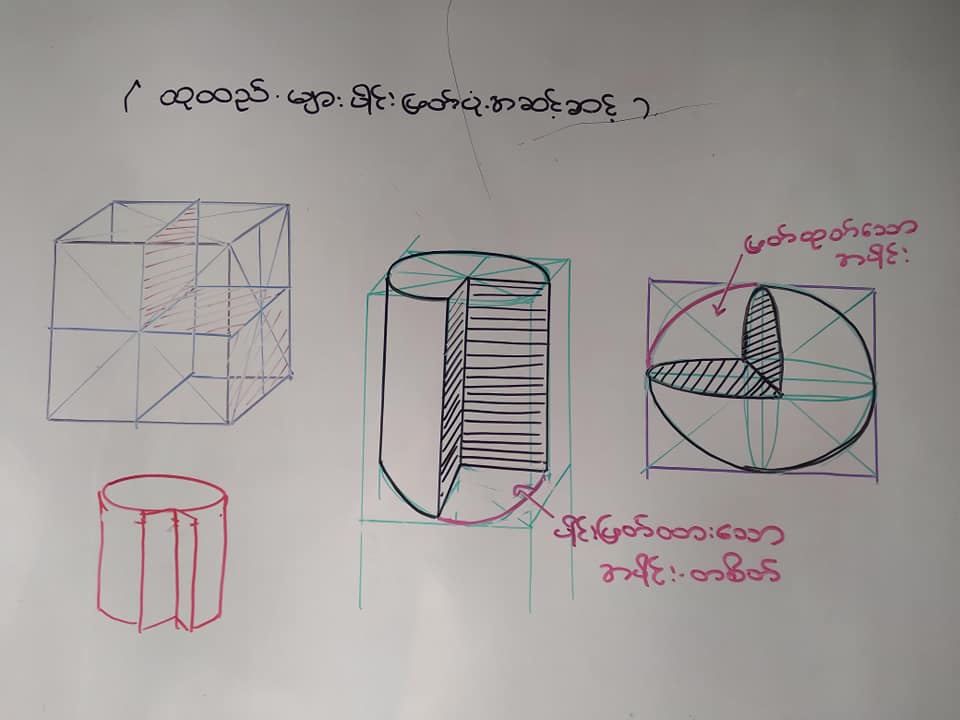 ( ထုထည်များ ပိုင်းဖြတ်ပုံ အဆင့်ဆင့် )
ဖြတ်ထုတ်သော
အပိုင်း
ပိုင်းဖြတ်ထားသော
အပိုင်း တစိတ်